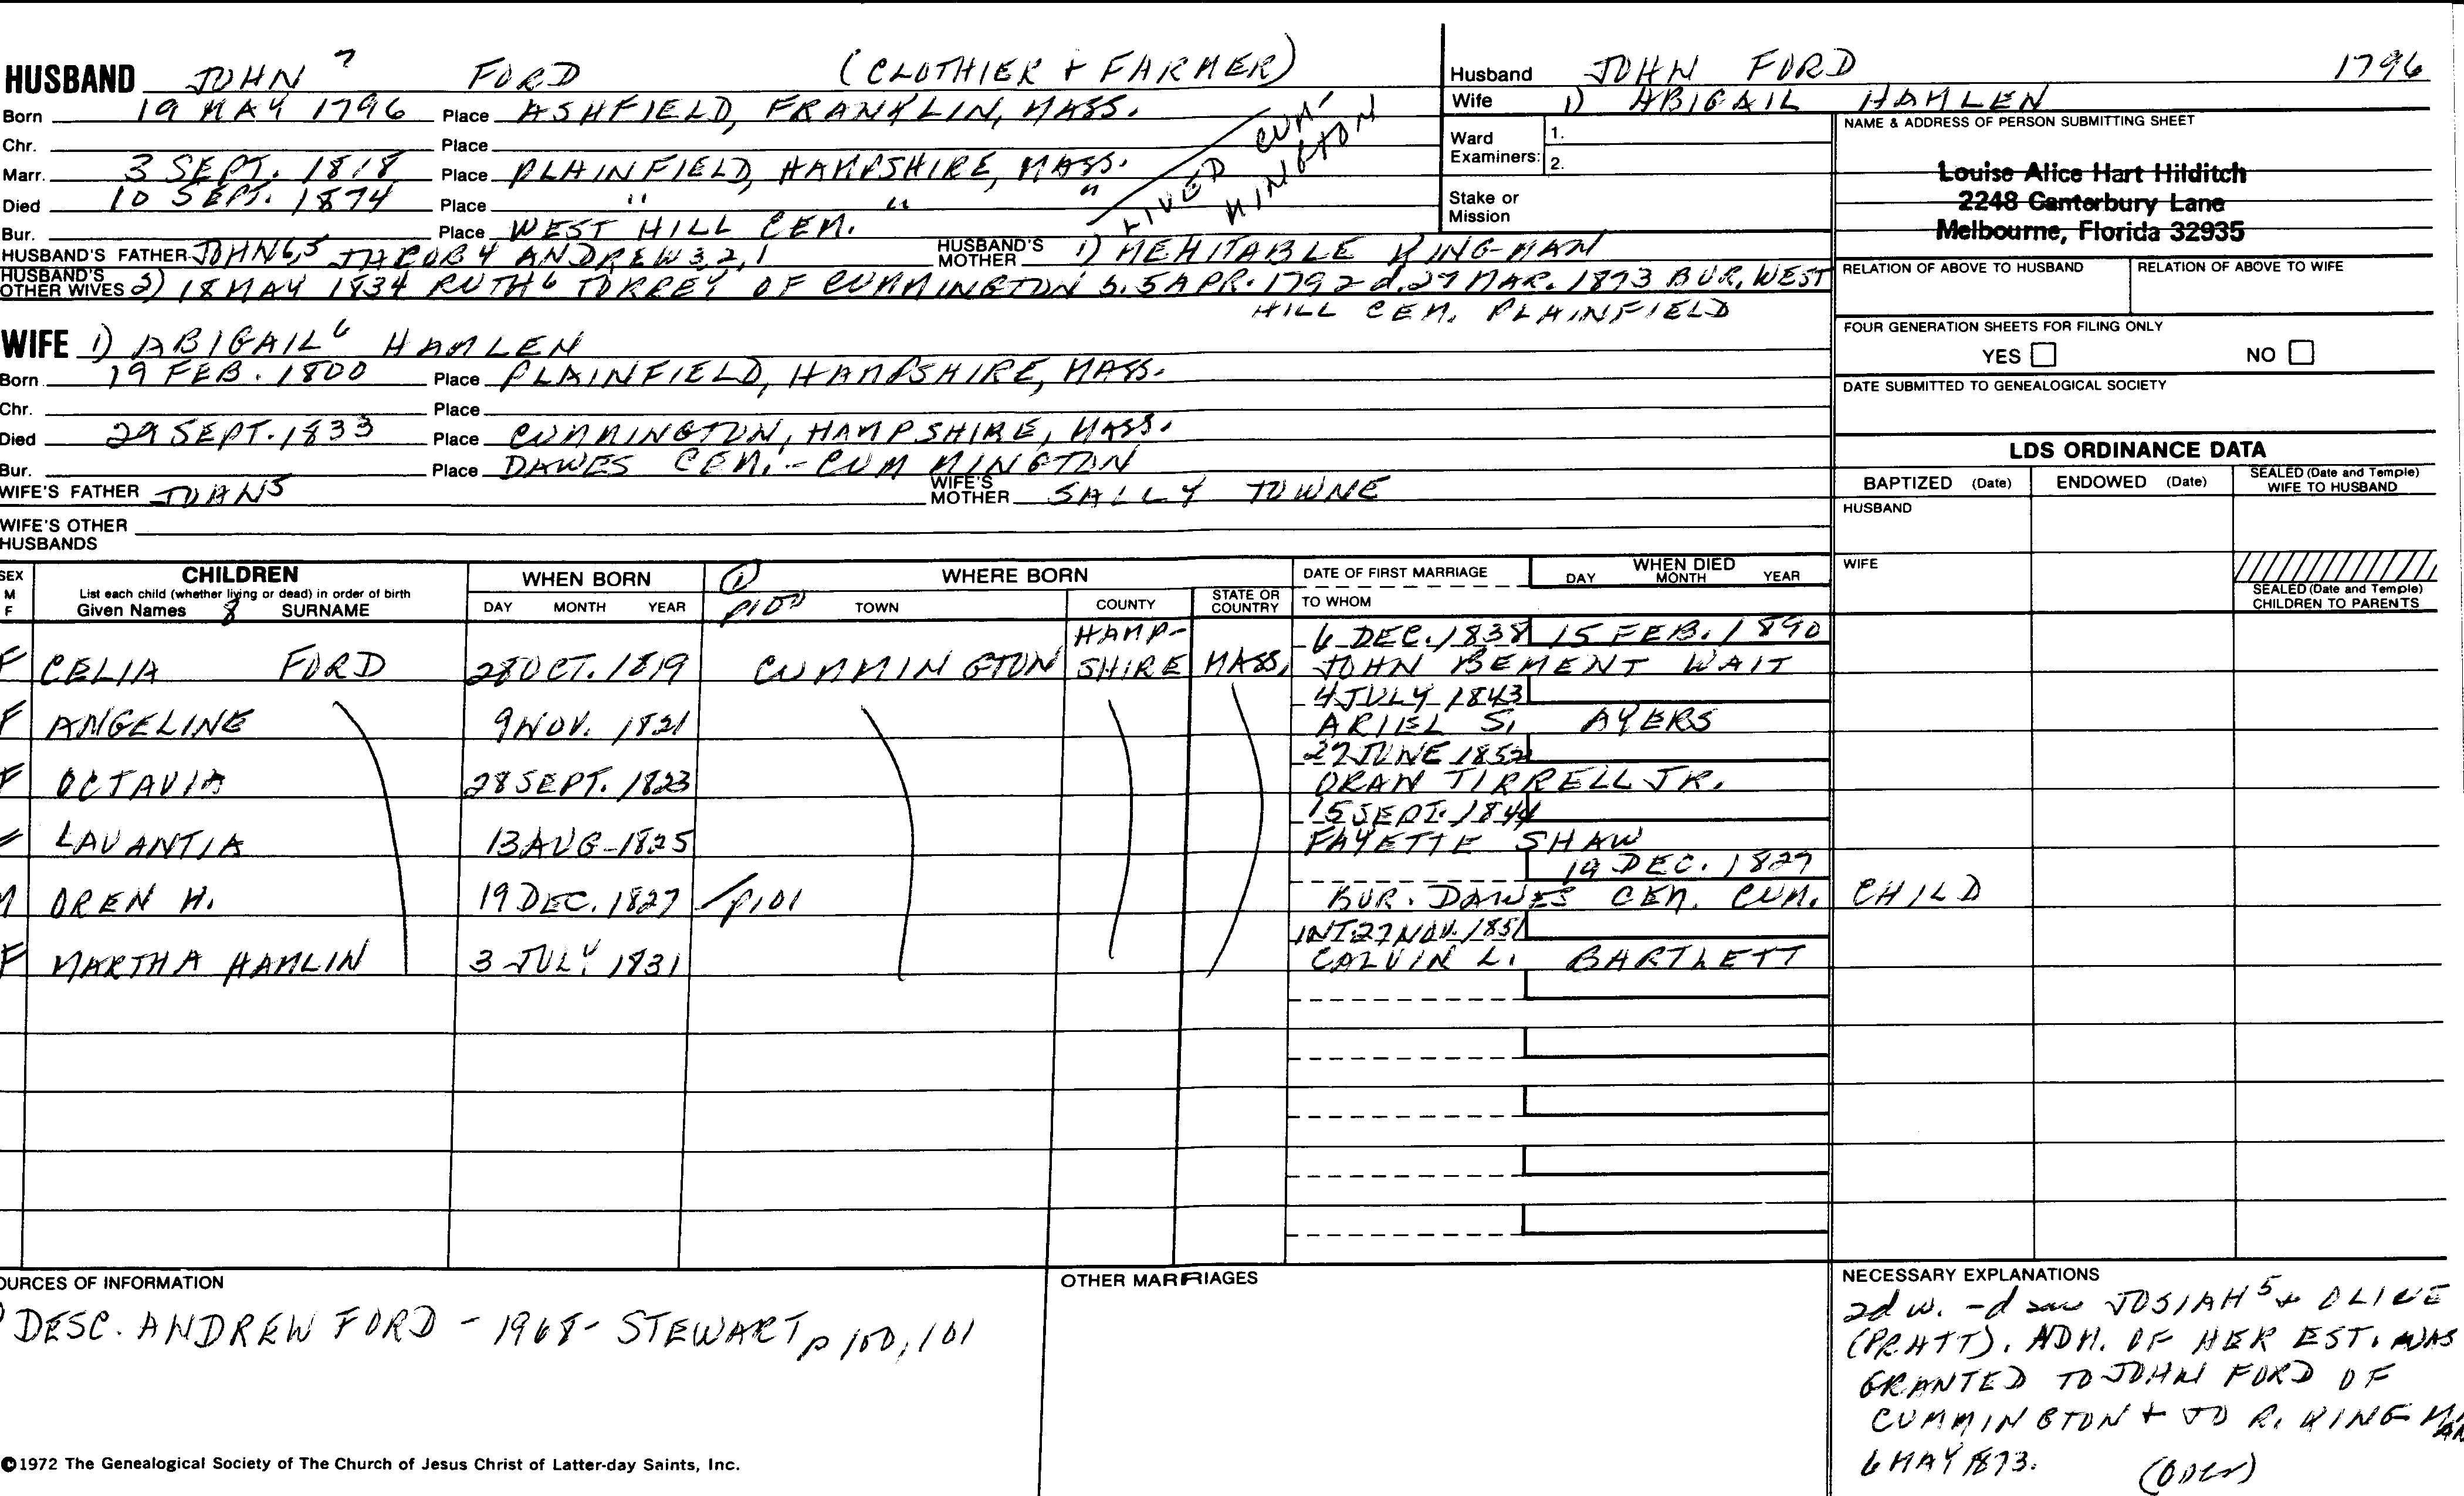 HUSBAND JOHN 7 FORD (CLOTHIER + FARMER)
Born 19 MAY 1796 Place ASHFIELD, FRANKLIN, MASS.
Chr. Place
Marr. 3 SEPT. 1818 Place PLAINFIELD, HAMPSHIRE, MASS.
Died 10 SEPT. 1874 Place " " "
LIVED CUM-
MINGTON
Bur. Place WEST HILL CEM.
HUSBAND'S FATHER JOHN 6,5 JACOB 4 ANDREW 3,2,1 HUSBAND'S MOTHER 1) MEHITABLE KINGMAN
HUSBAND'S OTHER WIVES 2) 18 MAY 1834 RUTH 6 TORREY OF CUMMINGTON b. 5 APR. 1792 d. 27 MAR. 1873 BUR. WEST
HILL CEM. PLAINFIELD
WIFE 1) ABIGAIL 6 HAMLEN
Born 19 FEB. 1800 Place PLAINFIELD, HAMPSHIRE, MASS.
Chr. Place
Died 29 SEPT. 1833 Place CUMMINGTON, HAMPSHIRE, MASS.
Bur. Place DAWES CEM. - CUMMINGTON
WIFE'S FATHER WIFE'S MOTHER SALLY TOWNE
WIFE'S OTHER HUSBANDS
Husband JOHN FORD 1796
Wife 1) ABIGAIL HAMLEN
Ward Examiners: 1.
2.
Stake or Mission
NAME & ADDRESS OF PERSON SUBMITTING SHEET
Louise Alice Hart Hilditch
2248 Canterbury Lane
Melbourne, Florida 32935
RELATION OF ABOVE TO HUSBAND RELATION OF ABOVE TO WIFE
FOUR GENERATION SHEETS FOR FILING ONLY
YES NO
DATE SUBMITTED TO GENEALOGICAL SOCIETY
LDS ORDINANCE DATA
BAPTIZED (Date) ENDOWED (Date) SEALED (Date and Temple) WIFE TO HUSBAND
HUSBAND
WIFE
SEALED (Date and Temple) CHILDREN TO PARENTS
SEX M F CHILDREN WHEN BORN 1 WHERE BORN DATE OF FIRST MARRIAGE WHEN DIED
List each child (whether living or dead) in order of birth
Given Names 8 SURNAME DAY MONTH YEAR p100 TOWN COUNTY STATE OR COUNTRY TO WHOM DAY MONTH YEAR
HAMP- 6 DEC. 1838 15 FEB. 1890
F CELIA FORD 28 OCT. 1819 CUMMINGTON SHIRE MASS. JOHN BEMENT WAIT
4 JULY 1843
F ANGELINE 9 NOV. 1821 ARIEL S. AYERS
27 JUNE 1852
F OCTAVIA 28 SEPT. 1823 ORAN TIRRELL JR.
15 SEPT. 1844
F LAVANTIA 13 AUG - 1825 FAYETTE SHAW
19 DEC. 1827
M OREN H. 19 DEC. 1827 p101 BUR. DAWES CEM. CUM. CHILD
INT. 27 NOV. 1851
F MARTHA HAMLIN 3 JULY 1831 CALVIN L. BARTLETT
OURCES OF INFORMATION
DESC. ANDREW FORD - 1968 - STEWART p 100, 101
OTHER MARRIAGES
NECESSARY EXPLANATIONS
2d w. - JOSIAH 5 + OLIVE
(PRATT). ADM. OF HER EST. WAS
GRANTED TO JOHN FORD OF
CUMMINGTON + TO R. KINGMAN
6 MAY 1873. (OVER)
©1972 The Genealogical Society of The Church of Jesus Christ of Latter-day Saints, Inc.